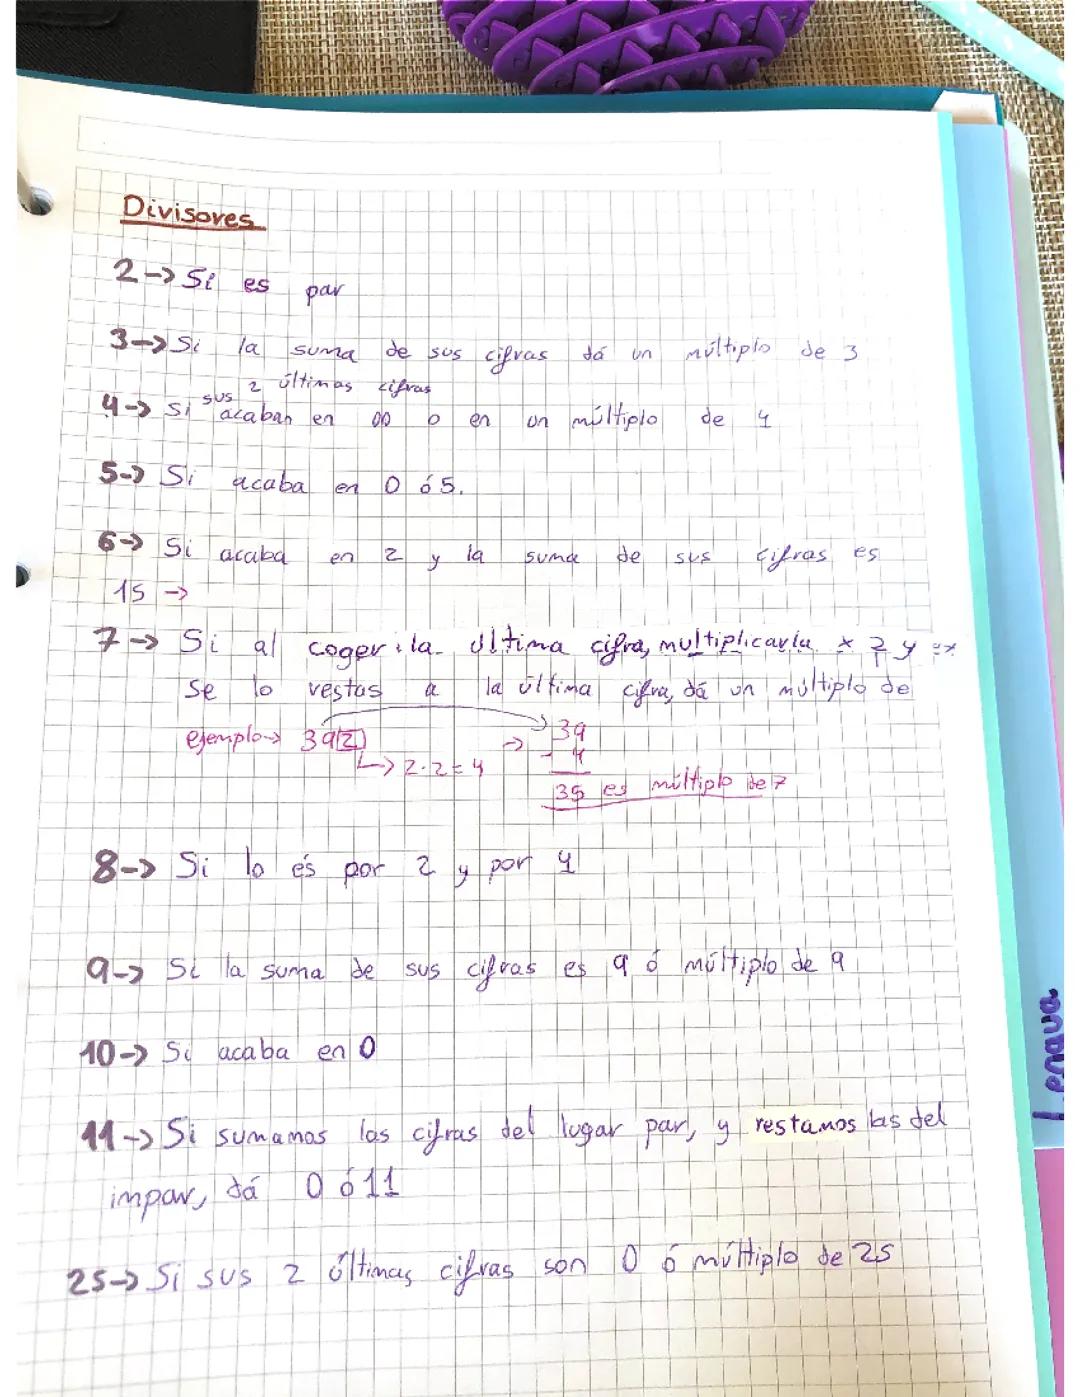 Divisores
2 -> Si es par
3 -> Si la suma de sus cifras dá un múltiplo de 3
4 -> Si sus 2 últimas cifras
acaban en 00 o en un múltiplo de 4
5 -> Si acaba en 0 ó 5.
6 -> Si acaba en 2 y la suma de sus cifras es
15 ->
7 -> Si al coger la última cifra, multiplicarla x 2 y
se lo restas a la última cifra, dá un múltiplo de
ejemplo -> 39 2 -> 39
-> 2·2=4 - 4
35 es múltiplo de 7
8 -> Si lo és por 2 y por 4
9 -> Si la suma de sus cifras es 9 ó múltiplo de 9
10 -> Si acaba en 0
11 -> Si sumamos las cifras del lugar par, y restamos las del
impar, dá 0 ó 11
25 -> Si sus 2 últimas cifras son 0 ó múltiplo de 25
Lengua